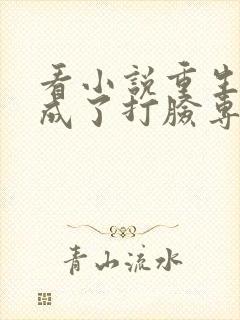 看小說重生
成了打臉專
青山流水